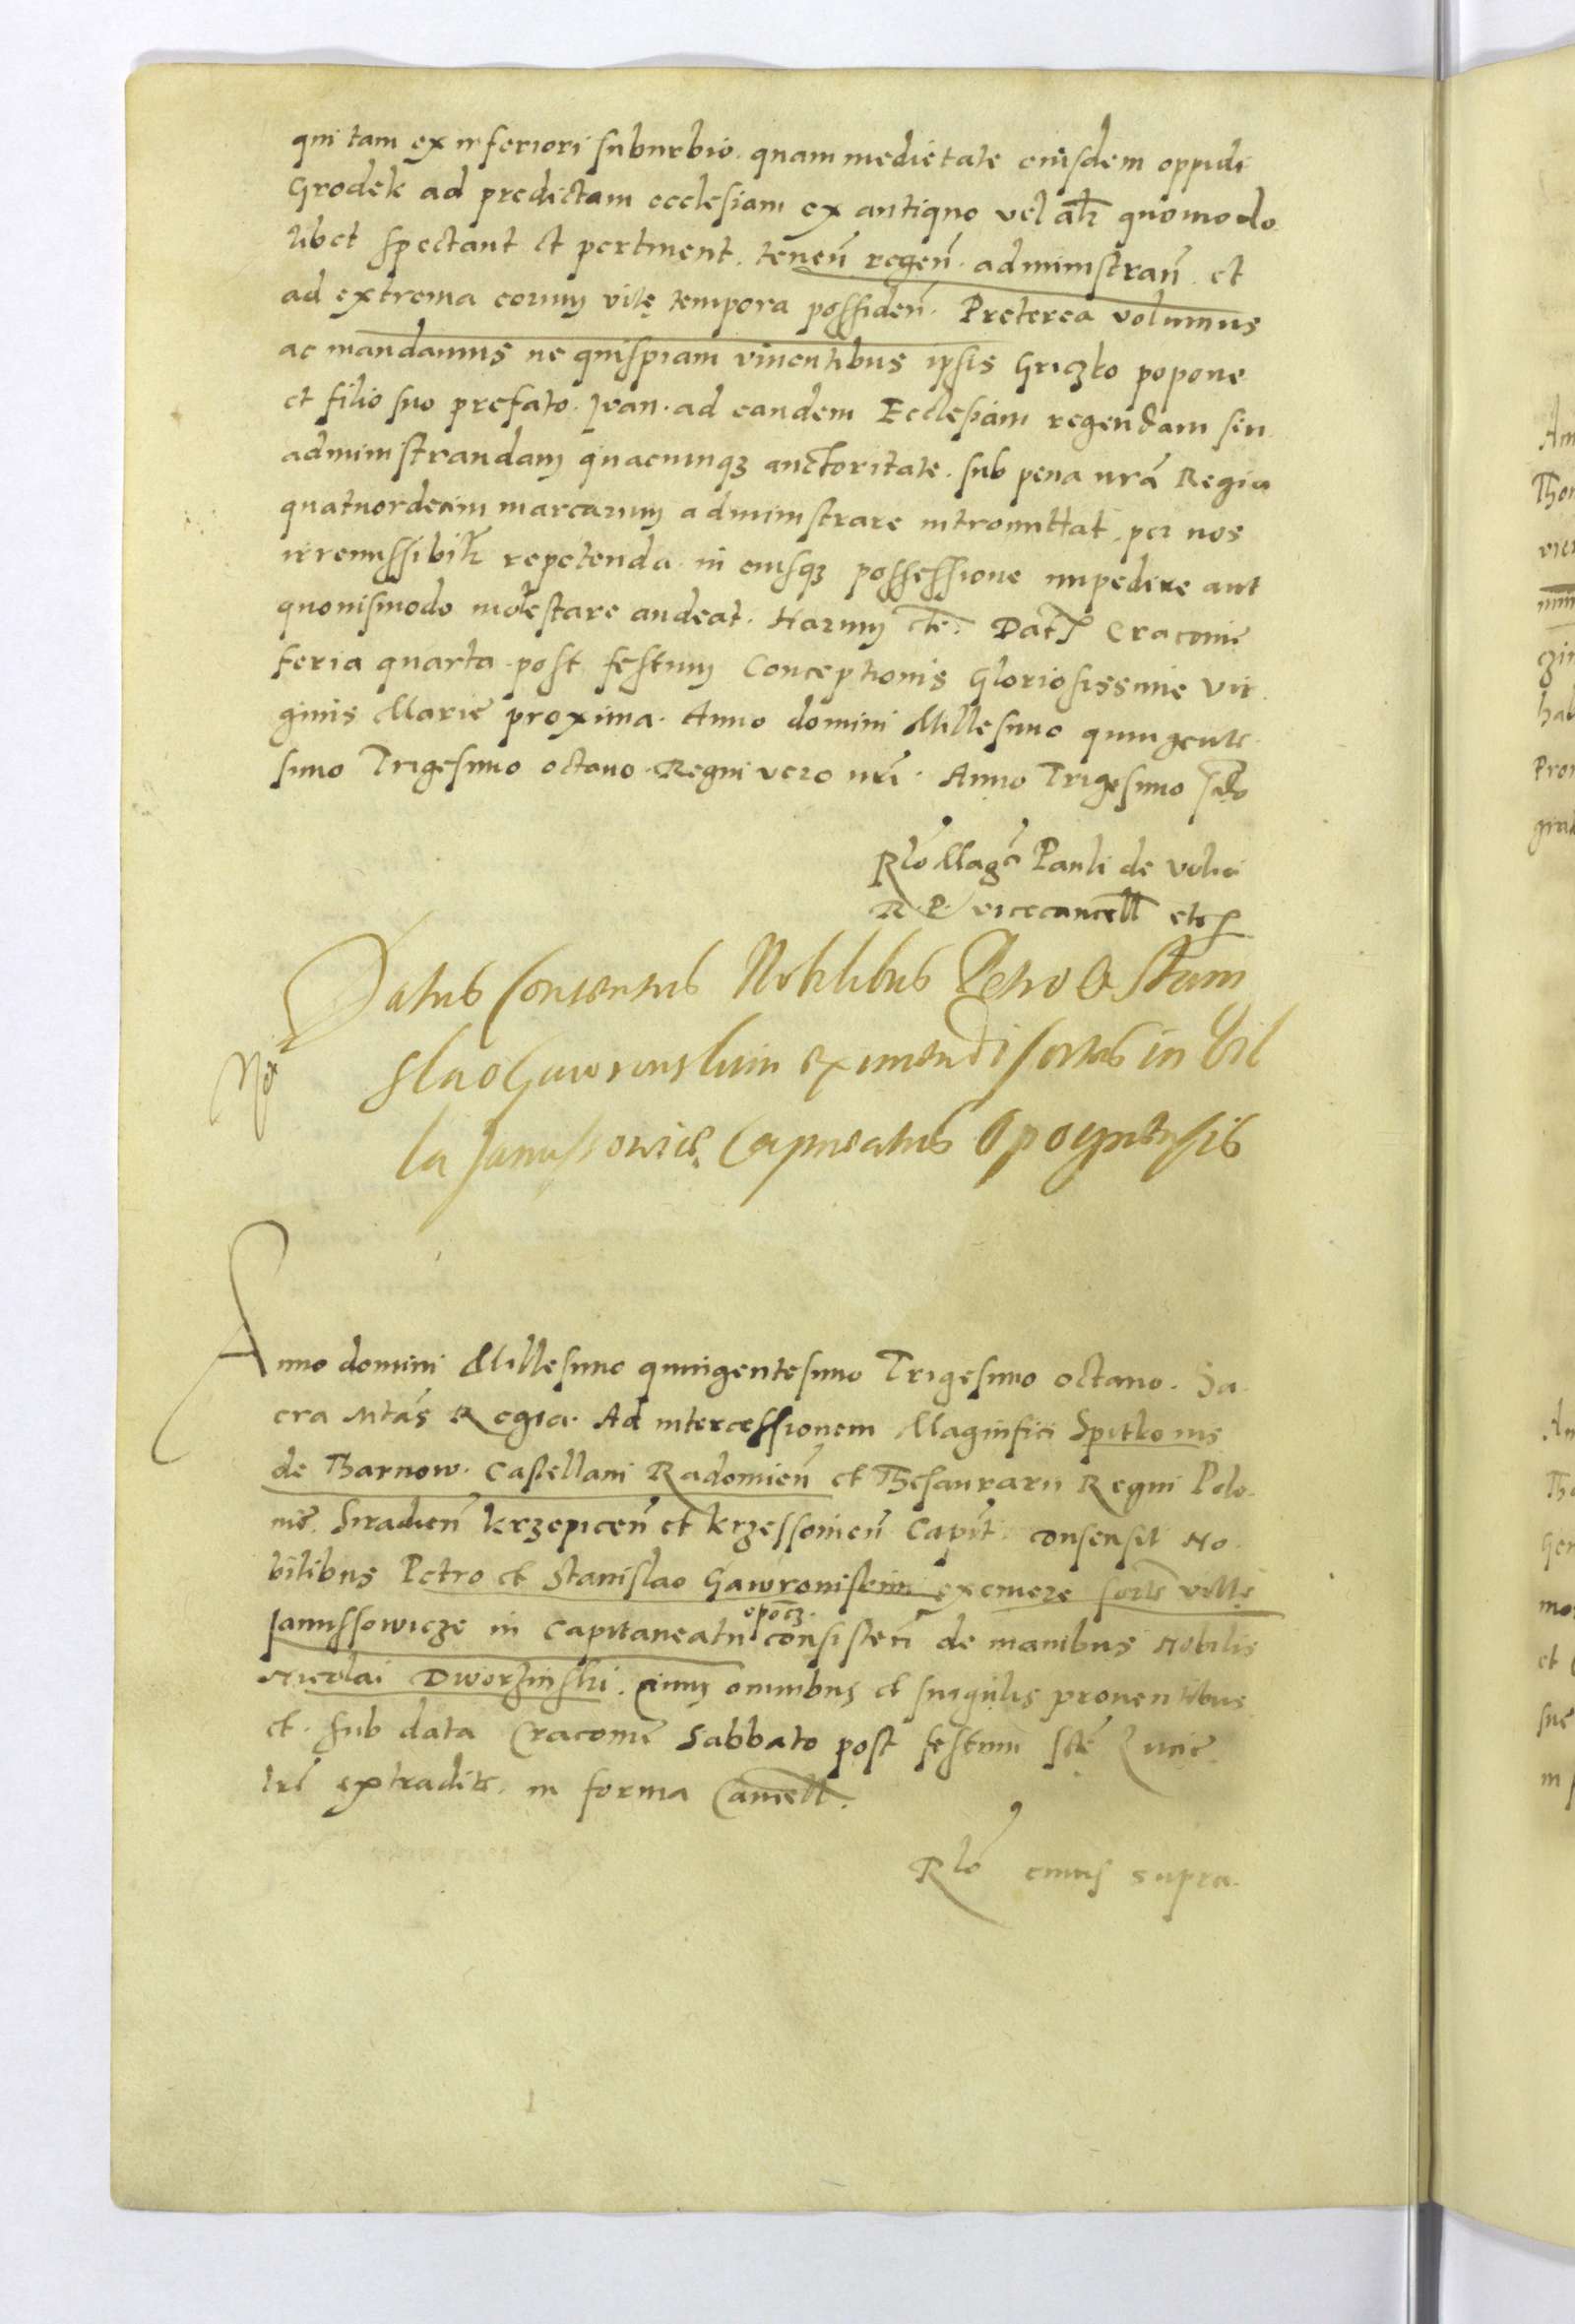 qui tam ex inferiori suburbio. quam medietate eiusdem oppidi
Grodek ad predictam ecclesiam ex antiquo vel alr̃ quomodo
libet spectant et pertinent. teneñ regeñ. administrañ. et
ad extrema eorum vitę tempora possideñ. Preterea volumus
ac mandamus ne quispiam viventibus ipsis Griczko popone
et filio suo prefato. Ivan. ad eandem Ecclesiam regendam seu
administrandam quacunqz auctoritate. sub pena nr̃a Regia
quatuordecim marcarum administrare intromittat. per nos
irremissibilr̃ repetenda. in eiusqz possessione impedire aut
quovismodo molestare audeat. Harum etc̃. Dat̃ Cracovie
feria quarta. post festum Conceptionis Gloriosissime Vir
ginis Marie proxima. Anno domini Millesimo quingente
simo Trigesimo octavo. Regni vero nr̃i. Anno Trigesimo sc̃do
Rl̃o Mag̃ci Pauli de volia
R. P. vicecancell̃ etc
Datus Consensus Nobilibus Petro & Stani
slao Gawronskim eximendi sortes in Vil
la Janussowicę Capneatus Opocznensis
Anno domini Millesimo quingentesimo Trigesimo octavo. Sa
cra Mtãs Regia. Ad intercessionem Magnifici Spitkonis
de Tharnow. Castellani Radomieñ et Thesaurarii Regni Polo
nie. Siradieñ krzepiceñ et krzessovieñ Capit̃. consensit No
bilibus Petro et Stanislao Gawroniskim exemere sortẽ villę
opocz.
Janussowicze in Capitaneatu consisteñ de manibus Nobilis
Nicolai Dworzinski. Cum omnibus et singulis proventibus
et. sub data Cracovie Sabbato post festum Sctę Lucie.
lr̃ę extradite. in forma Cancell̃.
Rl̃o eius supra.